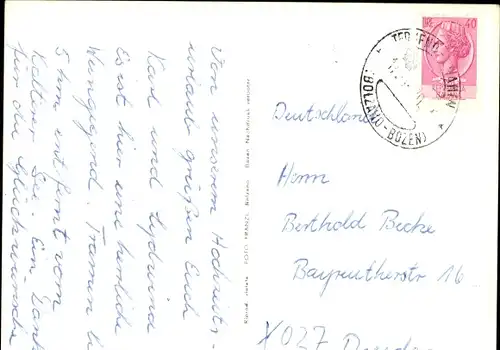 Von unserem Hochzeits-
urlaub grüßen Euch
Karl und Lydwina
Es ist hier eine herrliche
Umgegend. Tramin li
5 km entfernt vom
Kalterer See. Ein Dank
für die Glückwünsche
FOTO FRANZL Bolzano Bozen Nachdruck verboten
40
TERMENO TRAMIN
(BOLZANO - BOZEN)
Deutschland
Herrn
Berthold Becke
Bayreutherstr 16
X 027 Dresden